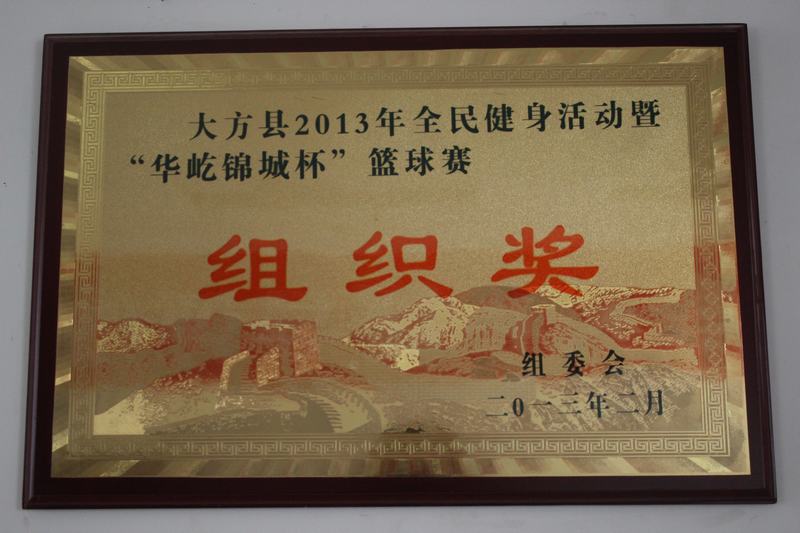 大方县2013年全民健身活动暨
“华屹锦城杯”篮球赛
组织奖
组委会
二0一三年二月